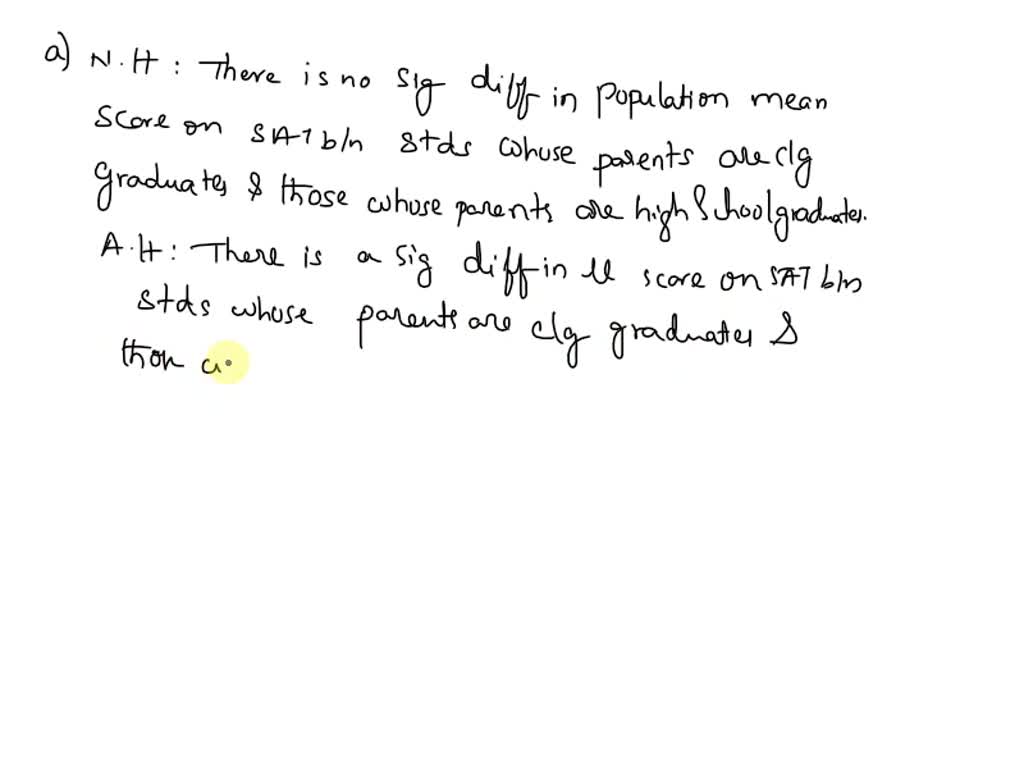 a) N.H : There is no sig diff in population mean
score on SAT b/n stds whose parents are clg
graduates & those whose parents are high school graduates.
A.H : There is a sig diff in μ score on SAT b/n
stds whose parents are clg graduates &